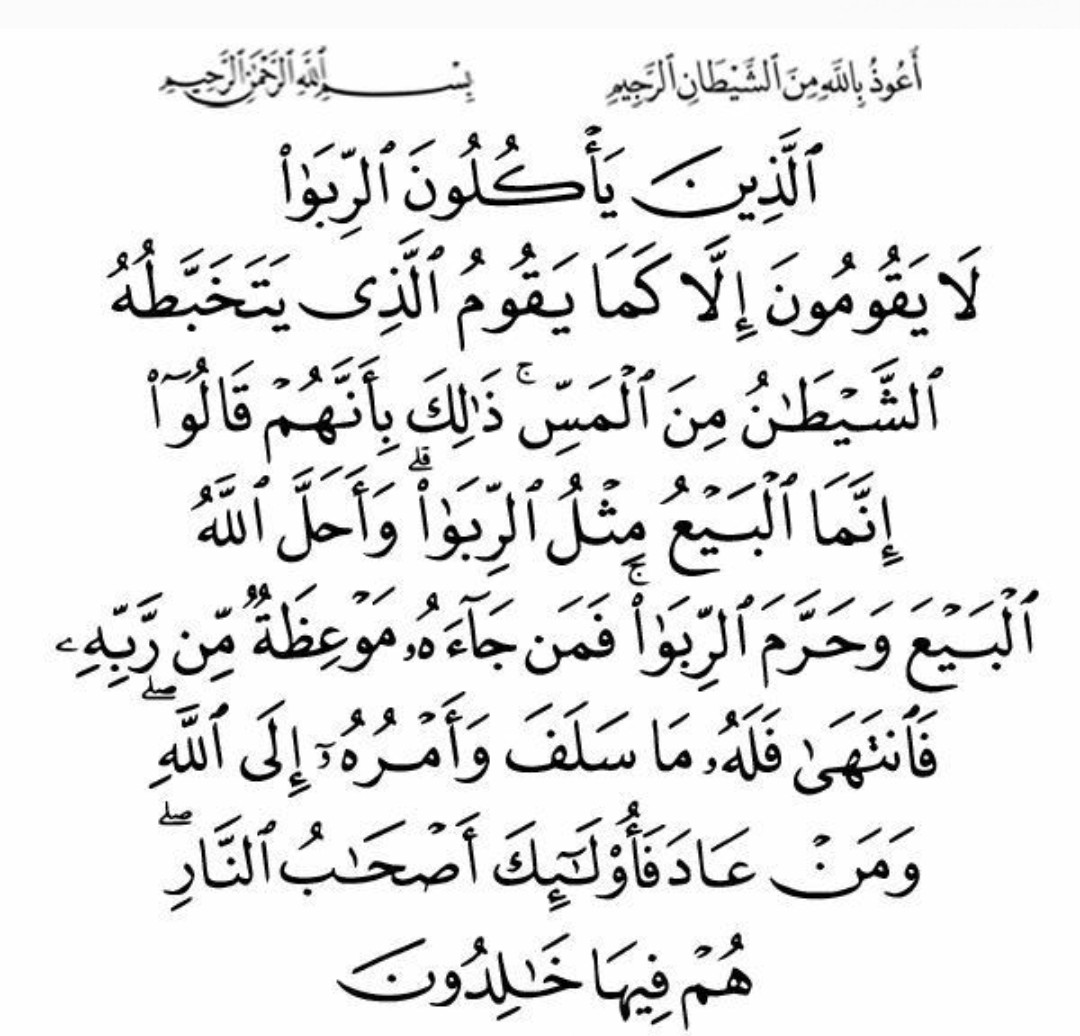 أَعُوذُ بِاللَّهِ مِنَ ٱلشَّيْطَانِ ٱلرَّجِيمِ بِسْمِ ٱللَّهِ ٱلرَّحْمَٰنِ ٱلرَّحِيمِ
ٱلَّذِينَ يَأْكُلُونَ ٱلرِّبَوٰا۟
لَا يَقُومُونَ إِلَّا كَمَا يَقُومُ ٱلَّذِى يَتَخَبَّطُهُ
ٱلشَّيْطَٰنُ مِنَ ٱلْمَسِّ ۚ ذَٰلِكَ بِأَنَّهُمْ قَالُوٓا۟
إِنَّمَا ٱلْبَيْعُ مِثْلُ ٱلرِّبَوٰا۟ ۗ وَأَحَلَّ ٱللَّهُ
ٱلْبَيْعَ وَحَرَّمَ ٱلرِّبَوٰا۟ ۚ فَمَن جَآءَهُۥ مَوْعِظَةٌ مِّن رَّبِّهِۦ
فَٱنتَهَىٰ فَلَهُۥ مَا سَلَفَ وَأَمْرُهُۥٓ إِلَى ٱللَّهِ ۖ
وَمَنْ عَادَ فَأُو۟لَٰٓئِكَ أَصْحَٰبُ ٱلنَّارِ ۖ
هُمْ فِيهَا خَٰلِدُونَ